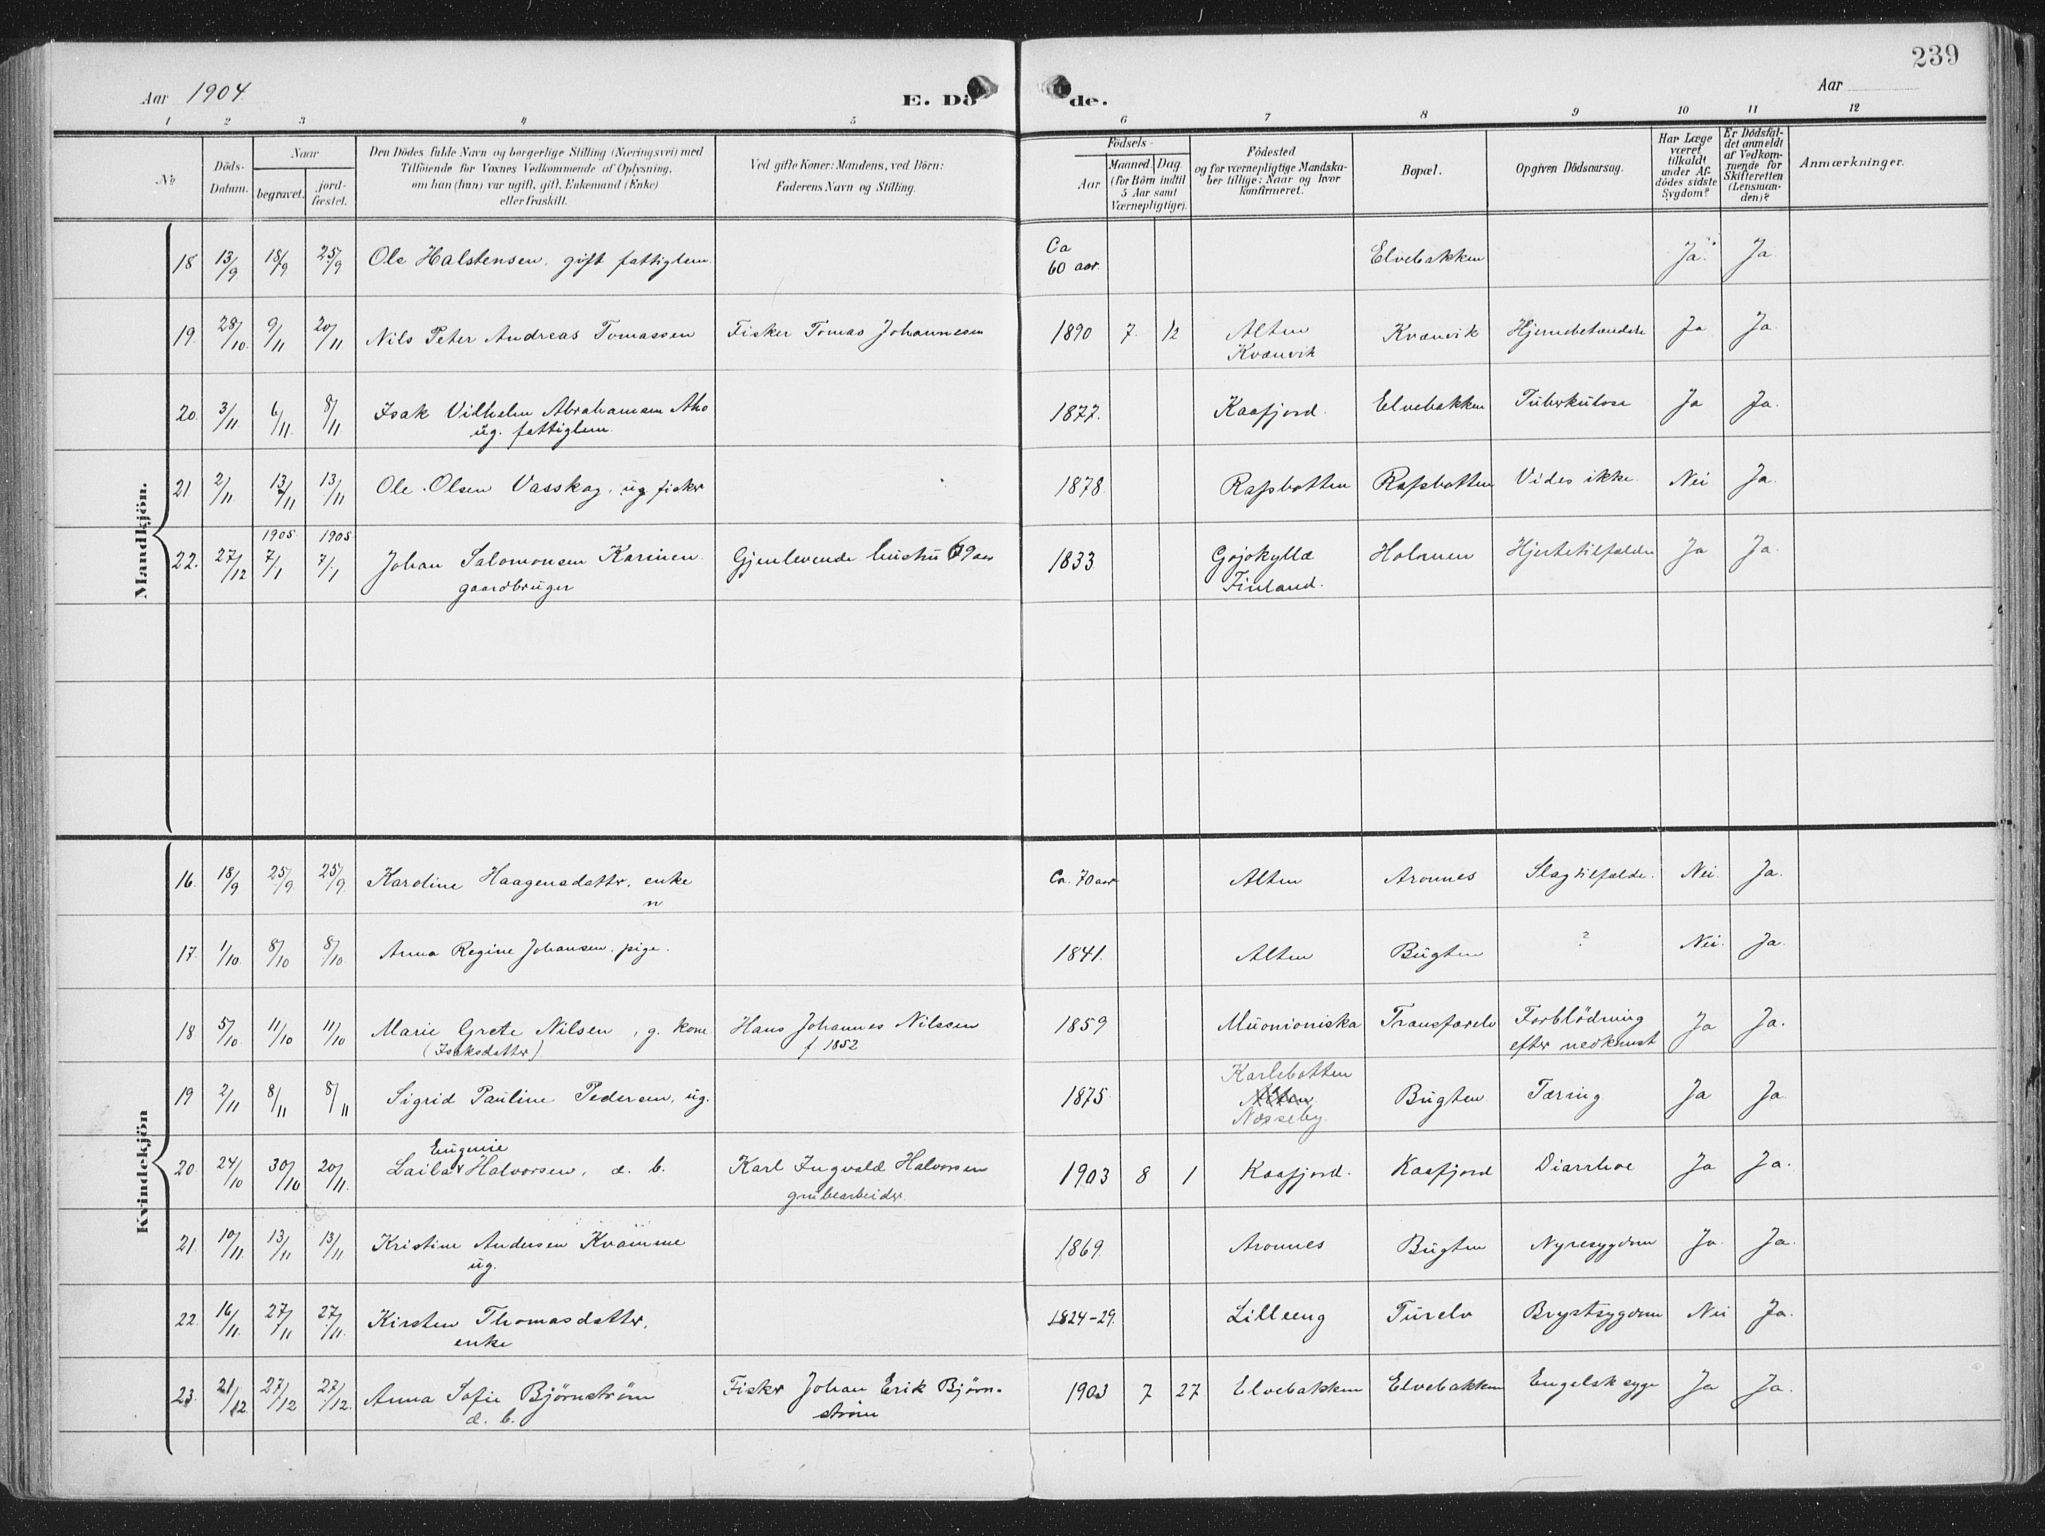 239
Aar 1904
E. Dö de.
Aar
1 2 3 4 5 6 7 8 9 10 11 12
No
Döds-
Datum.
Naar
begravet.
jord-
fæstet.
Den Dödes fulde Navn og borgerlige Stilling (Næringsvei) med
Tilföiende for Voxnes Vedkommende af Oplysning,
om han (hun) var ugift, gift, Enkemand (Enke)
eller fraskilt.
Ved gifte Koner: Mandens, ved Börn:
Faderens Navn og Stilling.
Födsels-
Aar
Maaned. Dag.
(for Börn indtil
5 Aar samt
Værnepligtige).
Födested
og for værnepligtige Mandska-
ber tillige: Naar og hvor
konfirmeret.
Bopæl.
Opgiven Dödsaarsag.
Har Læge
været
tilkaldt
under Af-
dödes sidste
Sygdom?
Er Dödsfal-
det anmeldt
af Vedkom-
mende for
Skifteretten
(Lensman-
den)?
Anmærkninger.
Mandkjön.
18 13/9 18/9 25/9 Ole Halstensen, gift fattiglem. Ca 60 aar. Elvebakken Ja. Ja.
19. 28/10. 9/11 20/11 Nils Peter Andreas Tomassen Fisker Tomas Johannesen 1890 7. 12 Alten Kvænvik Kvænvik Hjernebetændelse Ja Ja.
20. 3/11. 6/11. 8/11 Isak Vilhelm Abrahamsen Aho 1877. Kaafjord. Elvebakken Tuberkulose Ja Ja.
ug. fattiglem.
21 2/11 13/11 13/11 Ole Olsen Vasskog, ug fisker 1878. Rafsbotten Rafsbotten Vides ikke. Nei Ja.
1905 1905
22. 27/12 7/1 7/1 Johan Salomonsen Karinen Gjenlevende hustru 69 aar 1833. Gojokyllä Holmen Hjertetilfælde Ja Ja.
gaardbruger Finland.
Kvindekjön
16. 18/9 25/9 25/9. Karoline Haagensdatter, enke Ca. 70 aar Alten Aronnes Slagtilfælde. Nei. Ja.
17. 1/10. 8/10 8/10. Anna Regine Johansen. pige. 1841. Alten Bugten ? Nei. Ja.
18 5/10. 11/10 11/10 Marie Grete Nilsen, g. kone Hans Johannes Nilssen 1859 Muonioniska Transfarelv Forblödning Ja Ja.
(Isaksdatter) f 1852 efter nedkomst
Karlebotten
19 2/11 8/11 8/11 Sigrid Pauline Pedersen, ug. 1875. Alten Bugten Tæring Ja Ja.
Nesseby.
Eugenie
20. 24/10 30/10 20/11. Laila Halvorsen, d. b. Karl Ingvald Halvorsen 1903 8 1 Kaafjord. Kaafjord Diarrhoe Ja Ja.
grubearbeider.
21. 10/11 13/11 13/11 Kristine Andersen Kvamme 1869. Aronnes Bugten Nyresygdom Ja. Ja.
ug.
22. 16/11. 27/11 27/11. Kirsten Thomasdatter, 1824-29. Lilleeng Turelv Brystsygdom Nei Ja.
enke
23. 21/12. 27/12 27/12. Anna Sofie Bjørnstrøm Fisker Johan Erik Bjørn- 1903 7 27 Elvebakken Elvebakken Engelsk syge Ja Ja.
d. b. strøm